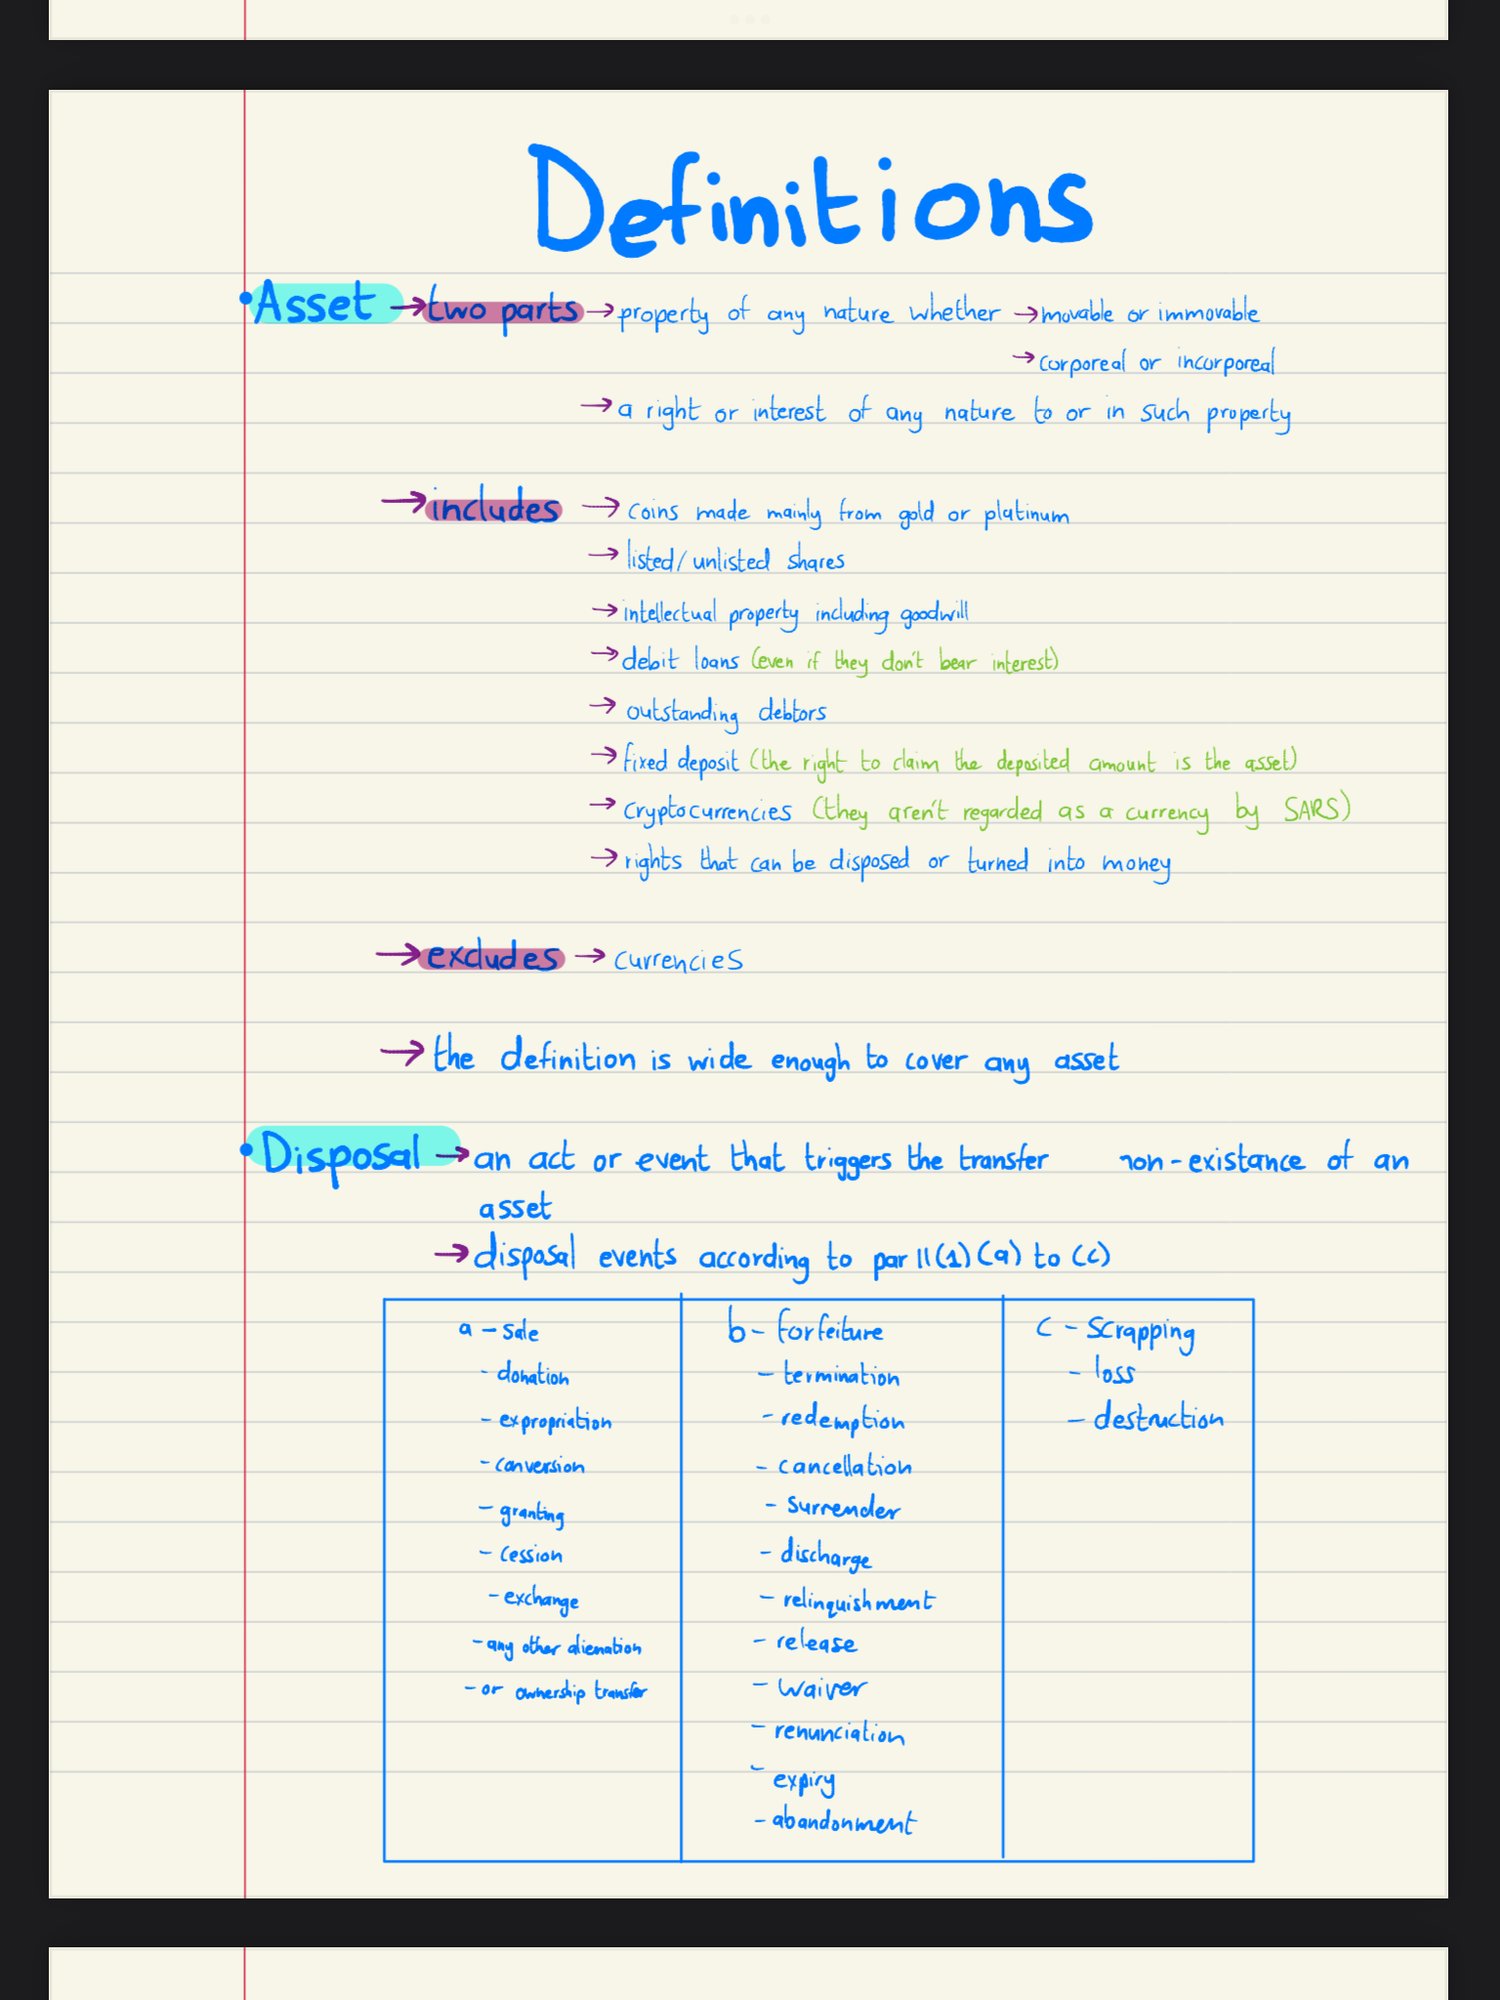 Definitions
• Asset → two parts → property of any nature whether → movable or immovable
→ corporeal or incorporeal
→ a right or interest of any nature to or in such property
→ includes → coins made mainly from gold or platinum
→ listed/unlisted shares
→ intellectual property including goodwill
→ debit loans (even if they don't bear interest)
→ outstanding debtors
→ fixed deposit (the right to claim the deposited amount is the asset)
→ cryptocurrencies (they aren't regarded as a currency by SARS)
→ rights that can be disposed or turned into money
→ excludes → currencies
→ the definition is wide enough to cover any asset
• Disposal → an act or event that triggers the transfer non-existance of an
asset
→ disposal events according to par 11(1)(a) to (c)
a - sale
- donation
- expropriation
- conversion
- granting
- cession
- exchange
- any other alienation
- or ownership transfer
b - forfeiture
- termination
- redemption
- cancellation
- surrender
- discharge
- relinquishment
- release
- waiver
- renunciation
- expiry
- abandonment
c - scrapping
- loss
- destruction